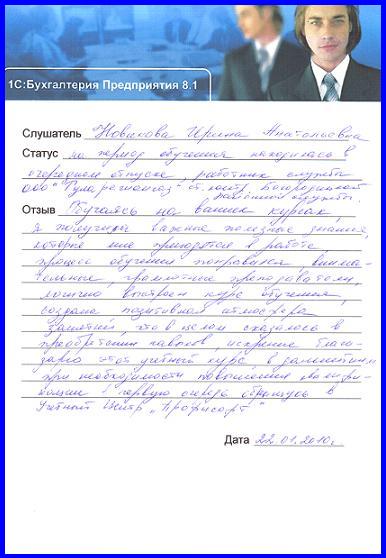 1С:Бухгалтерия Предприятия 8.1
Слушатель Новикова Ирина Анатольевна
Статус на период обучения находилась в
очередном отпуске, работник службы
ООО "Тularегионгаз" ст. контр. Богородицкой
районной службы.
Отзыв Обучаясь на ваших курсах,
я получила важные полезные знания,
которые мне пригодятся в работе
процесс обучения понравился внима-
тельные, грамотные преподаватели,
логично выстроен курс обучения,
создана позитивная атмосфера
занятий, что в целом сказалось в
приобретении навыков, искренне благо-
дарю этот учебный курс в дальнейшем
при необходимости повышения квалифи-
кации в первую очередь обращусь в
Учебный Центр "Профисорт"
Дата 22.01.2010г.